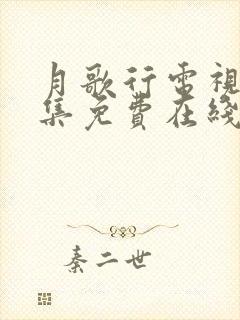 月歌行電視
集免費在綫
秦二世